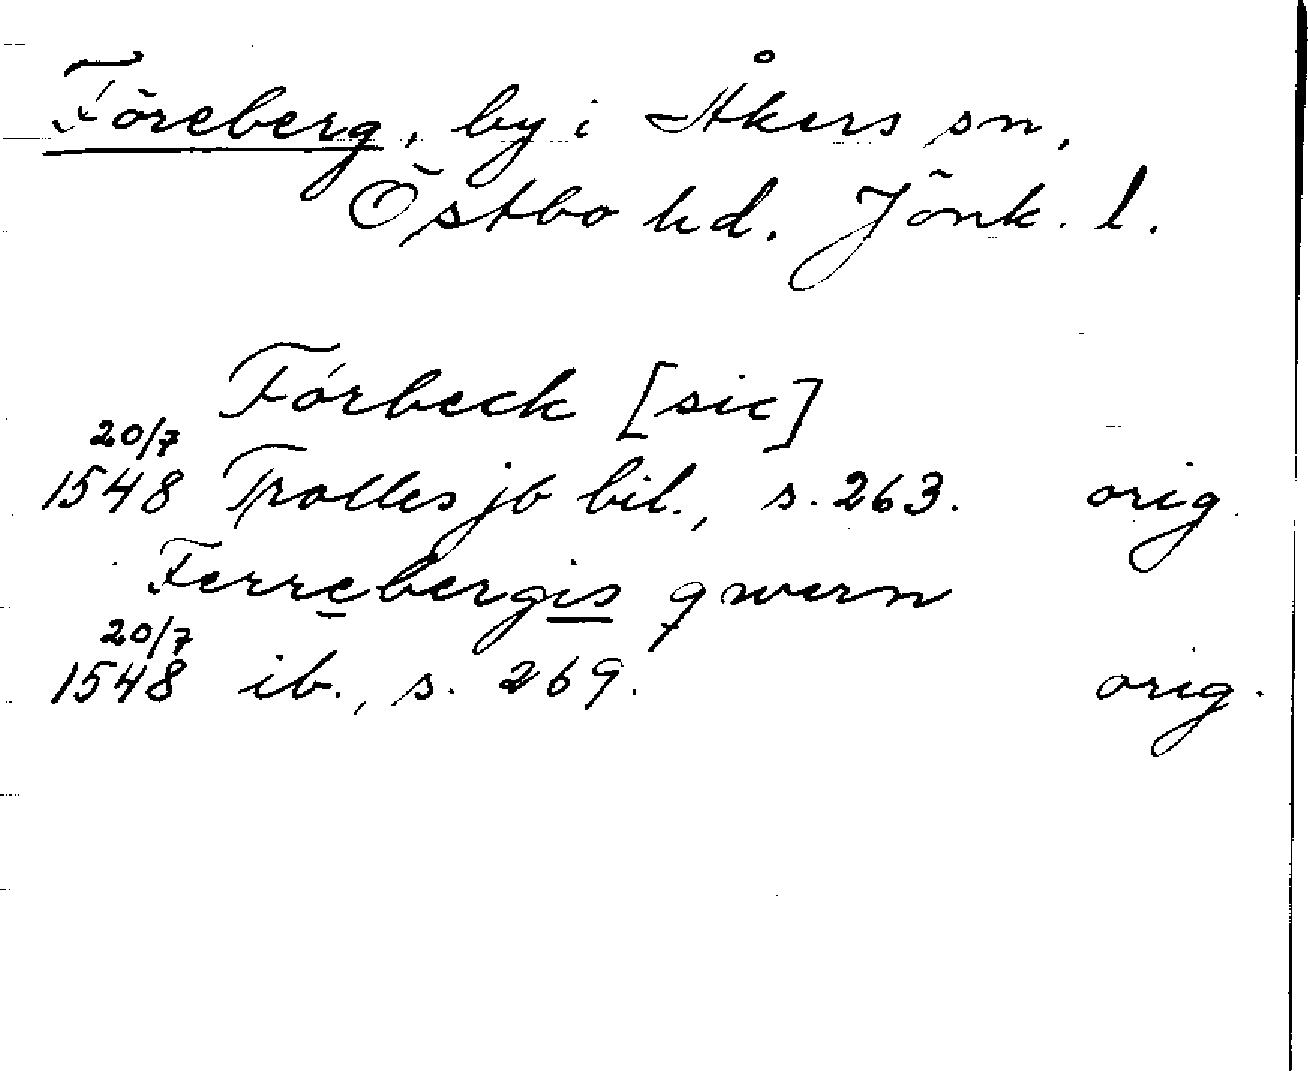 Föreberg, by i Åkers sn,
Östbo hd. Jönk. l.
Fórbeck [sic]
20/7
1548 Trolles jb bil., s. 263. orig.
Ferrebergis qwern
20/7
1548 ib., s. 269. orig.